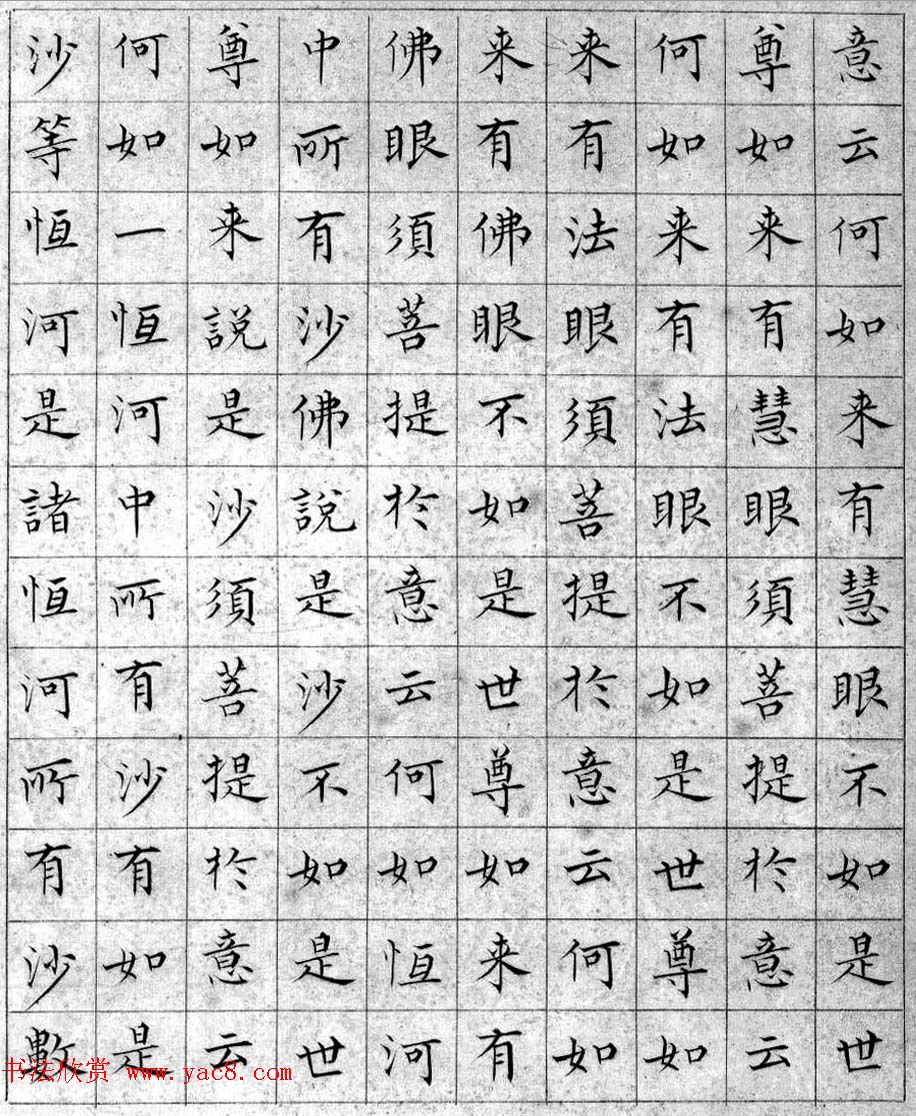 意云何如来有慧眼不如是世
尊如来有慧眼須菩提於意云
何如来有法眼不如是世尊如
来有法眼須菩提於意云何如
来有佛眼不如是世尊如来有
佛眼須菩提於意云何如恒河
中所有沙佛說是沙不如是世
尊如来說是沙須菩提於意云
何如一恒河中所有沙有如是
沙等恒河是諸恒河所有沙數
书法欣赏 www.yac8.com